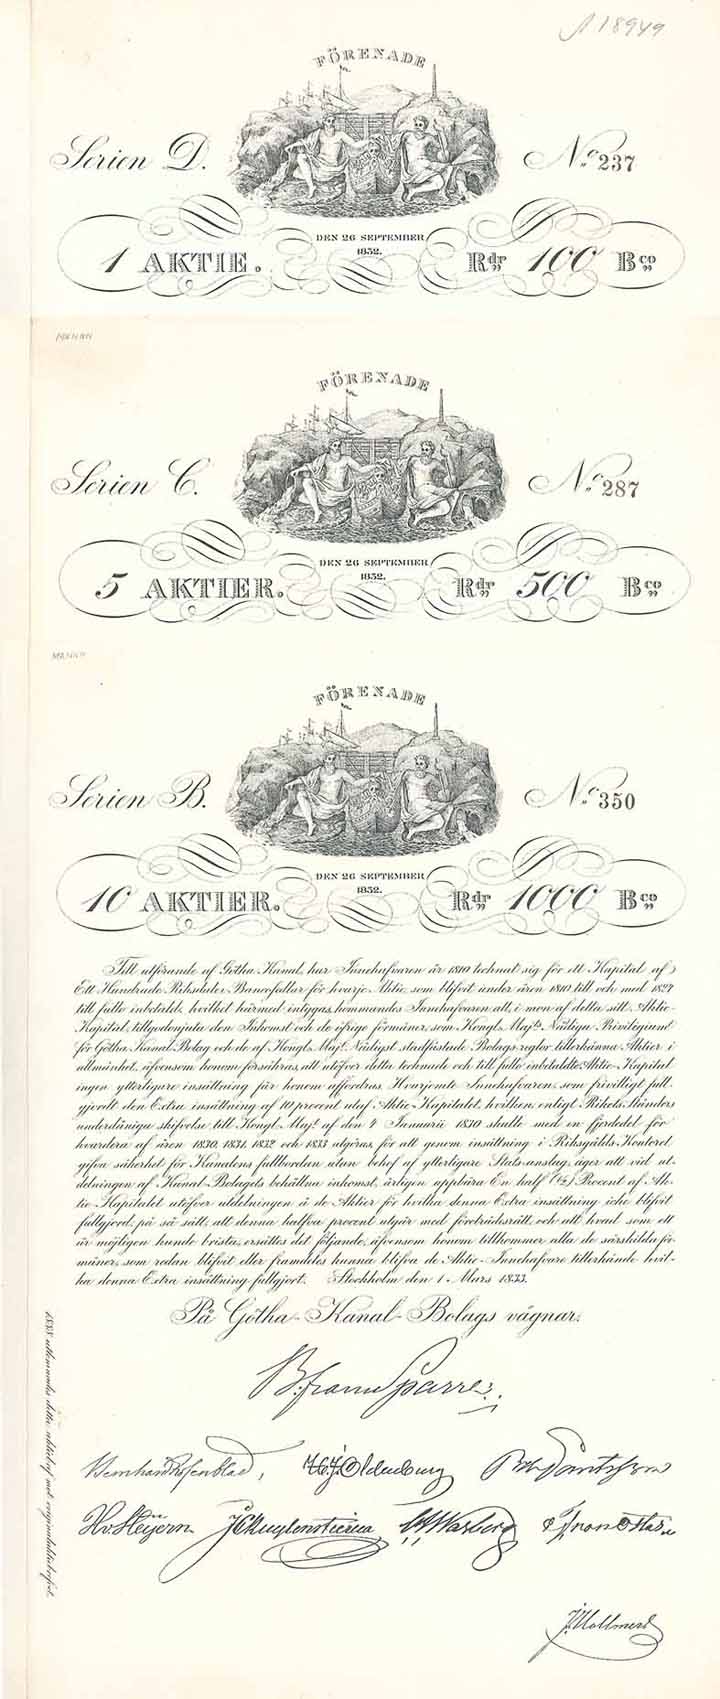 18949
FÖRENADE
Serien D. No. 237
DEN 26 SEPTEMBER
1832.
1 AKTIE. Rdr 100 Bco
FÖRENADE
Serien C. No. 287
DEN 26 SEPTEMBER
1832.
5 AKTIER. Rdr 500 Bco
FÖRENADE
Serien B. No. 350
DEN 26 SEPTEMBER
1832.
10 AKTIER. Rdr 1000 Bco
Till utförande af Götha Kanal, har Innehafvaren år 1810 technat sig för ett Kapital af
Ett Hundrade Riksdaler Bancosedlar för hvarje Aktie, som blifvit under åren 1810 till och med 1827
till fullo inbetaldt, hvilket härmed intygas, kommandes Innehafvaren att, i mon af detta sitt Aktie-
Kapital, tillgodonjuta den Inkomst och de öfrige förmåner, som Kongl. Maj:ts Nådiga Privilegium
för Götha Kanal Bolag och de af Kongl. Maj:t Nådigst stadfästade Bolags-regler tillerkänna Aktier i
allmänhet, äfvensom honom försäkras, att utöfver detta technade och till fullo inbetaldte Aktie-Kapital
ingen ytterligare insättning får honom affordras. Hvarjemte Innehafvaren, som frivilligt full-
gjordt den Extra insättning af 10 procent utaf Aktie-Kapitalet, hvilken, enligt Rikets Ständers
underdåniga skrifvelse till Kongl. Maj:t af den 4 Januarii 1830 skulle med en fjerdedel för
hvardera af åren 1830, 1831, 1832 och 1833 utgöras, för att genom insättning i Riksgälds-Kontoret
gifva säkerhet för Kanalens fullbordan utan behof af ytterligare Stats-anslag, äger att vid ut-
delningen af Kanal-Bolagets behållna inkomst, årligen uppbära En half (½) Procent af Ak-
tie-Kapitalet utöfver utdelningen å de Aktier för hvilka denna Extra insättning icke blifvit
fullgjord, på så sätt, att denna halfva procent utgår med företrädsrätt, och att hvad som ett
år möjligen kunde brista, ersättes det följande, äfvensom honom tillkommer alla de särskilda för-
måner, som redan blifvit eller framdeles kunna blifva de Aktie-Innehafvare tillerkände hvil-
ka denna Extra insättning fullgjort. Stockholm den 1 Mars 1833.
På Götha-Kanal-Bolags vägnar:
B. Fr. von Sparre
Bernhard Rosenblad, Oldenburg
H. v. Heijern. J C Kuylenstierna C. Warberg